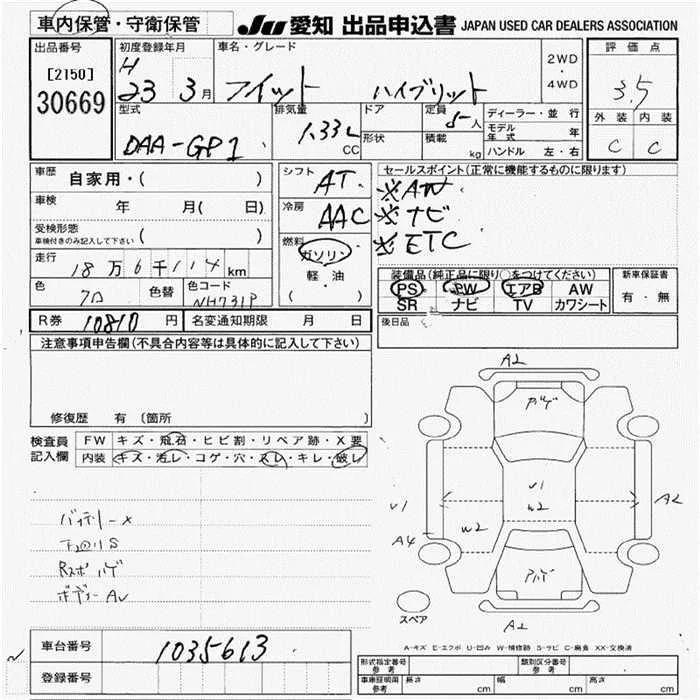 車内保管・守衛保管
JU 愛知 出品申込書 JAPAN USED CAR DEALERS ASSOCIATION
出品番号
[2150]
30669
初度登録年月
H
23 3月
車名・グレード
フィット ハイブリット
2WD
・
4WD
評価点
3.5
外装 内装
C C
型式
DAA-GP1
排気量
1.33L
CC
ドア
形状
定員
5人
積載
kg
ディーラー・並行
モデル年式 年
ハンドル 左・右
車歴
自家用・( )
車検
年 月( 日)
受検形態
車検付きのみ記入して下さい ( )
走行
18万6千114km
色
クロ
色替
色コード
NH731P
シフト
AT
冷房
AAC
燃料
ガソリン・
軽・油
( )
セールスポイント(正常に機能するものに限ります)
※AW
※ナビ
※ETC
装備品(純正品に限り○をつけてください)
PS PW エアB AW
SR ナビ TV カワシート
新車保証書
有・無
R券 10810 円
名変通知期限 月 日
後日品
注意事項申告欄(不具合内容等は具体的に記入して下さい)
修復歴 有(箇所 )
検査員記入欄
FW キズ・飛石・ヒビ割・リペア跡・X要
内装 キズ・汚レ・コゲ・穴・スレ・キレ・破レ
バッテリーX
下回りS
Rスポハゲ
ボディーAU
A2
ハゲ
U1
W2
U1
A4
W2
A2
ハゲ
スペア
A2
A-キズ E-エクボ U-凹み W-補修跡 S-サビ C-腐食 XX-交換済
車台番号
1035613
登録番号
形式指定番号
参考
類別区分番号
参考
車庫証明用
参考
長さ cm 幅 cm 高さ cm